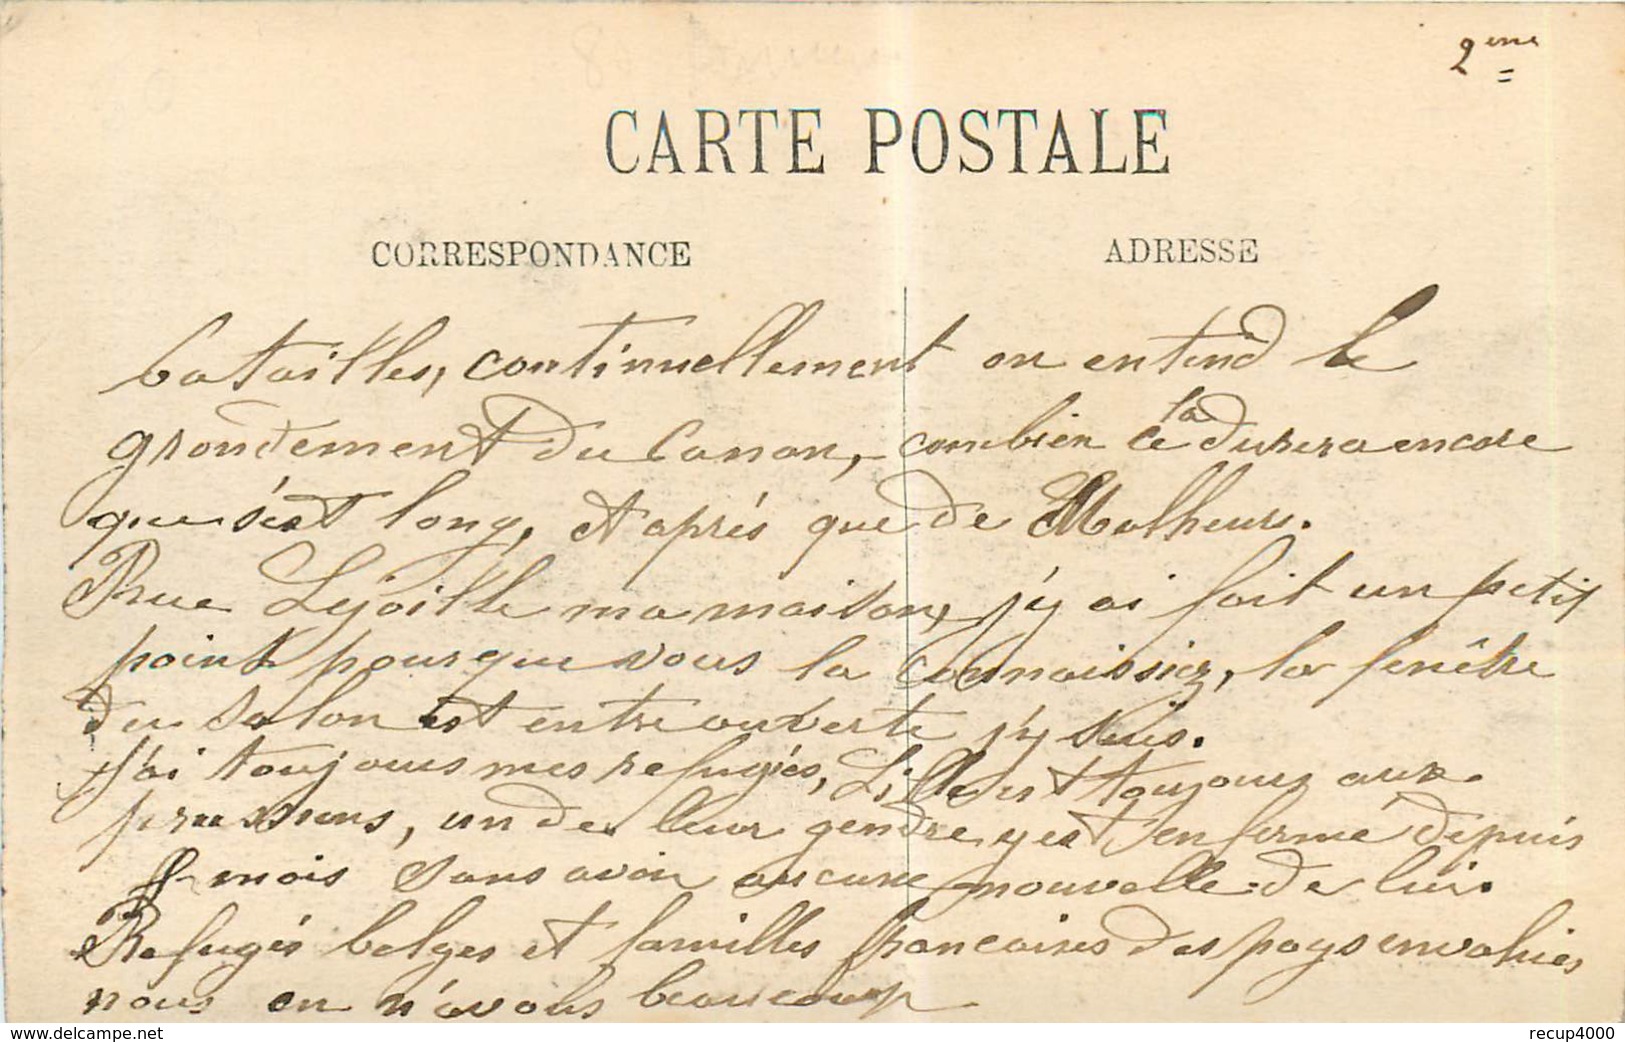 2ème
CARTE POSTALE
CORRESPONDANCE
ADRESSE
batailles, continuellement on entend le
grondement du Canon, combien cela durera encore
que s'est long, et après que de Malheurs.
Rue Lejoille ma maison, j'y ai fait un petit
point pour que vous la connaissiez, la fenêtre
du salon est entre ouverte j'y suis.
J'ai toujours mes refugiés, Lille est toujours aux
prussiens, un de leur gendre y est enfermé depuis
mois sans avoir aucune nouvelle de lui.
Refugiés belges et familles francaises des pays envahies
nous en n'avons beaucoup
delcampe.net
recup4000